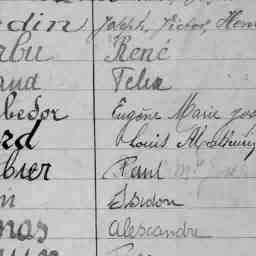 din Joseph, Victor, Henri
rbu René
aud Felix
bedor Eugène Marie Jos
rd Louis
bier Paul
in Isidon
mas Alexandre